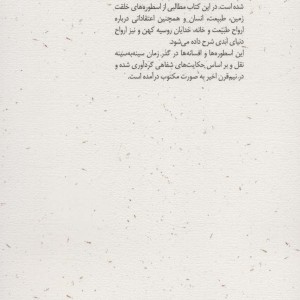 شده است. در این کتاب مطالبی از اسطوره‌های خلقت
زمین، طبیعت، انسان و همچنین اعتقاداتی درباره
ارواح طبیعت و خانه، خدایان روسیه کهن و نیز ارواح
دنیای ابدی شرح داده می‌شود.
این اسطوره‌ها و افسانه‌ها در گذر زمان سینه‌به‌سینه
نقل و بر اساس حکایت‌های شفاهی گردآوری شده و
در نیم‌قرن اخیر به صورت مکتوب درآمده است.